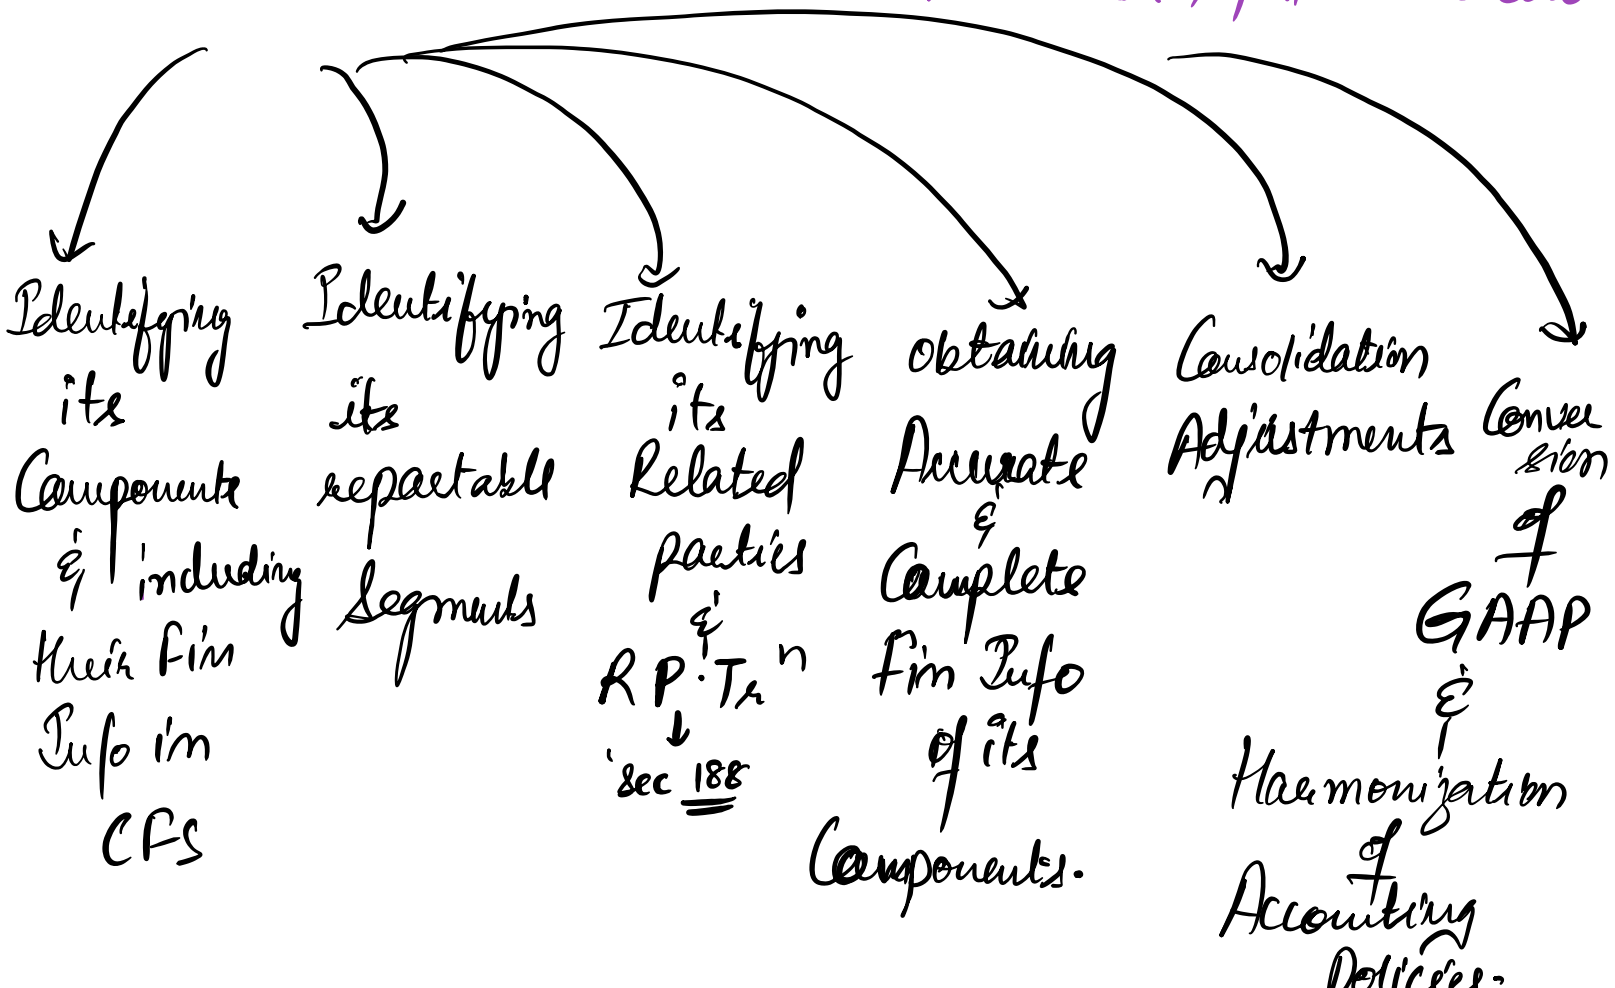 Identifying
its
Components
& including
their Fin
Info in
CFS
Identifying
its
reportable
Segments
Identifying
its
Related
parties
&
R P. Tr n
sec 188
obtaining
Accurate
&
Complete
Fin Info
of its
Components.
Consolidation
Adjustments
Conver
sion
of
GAAP
&
Harmonization
of
Accounting
Policies.